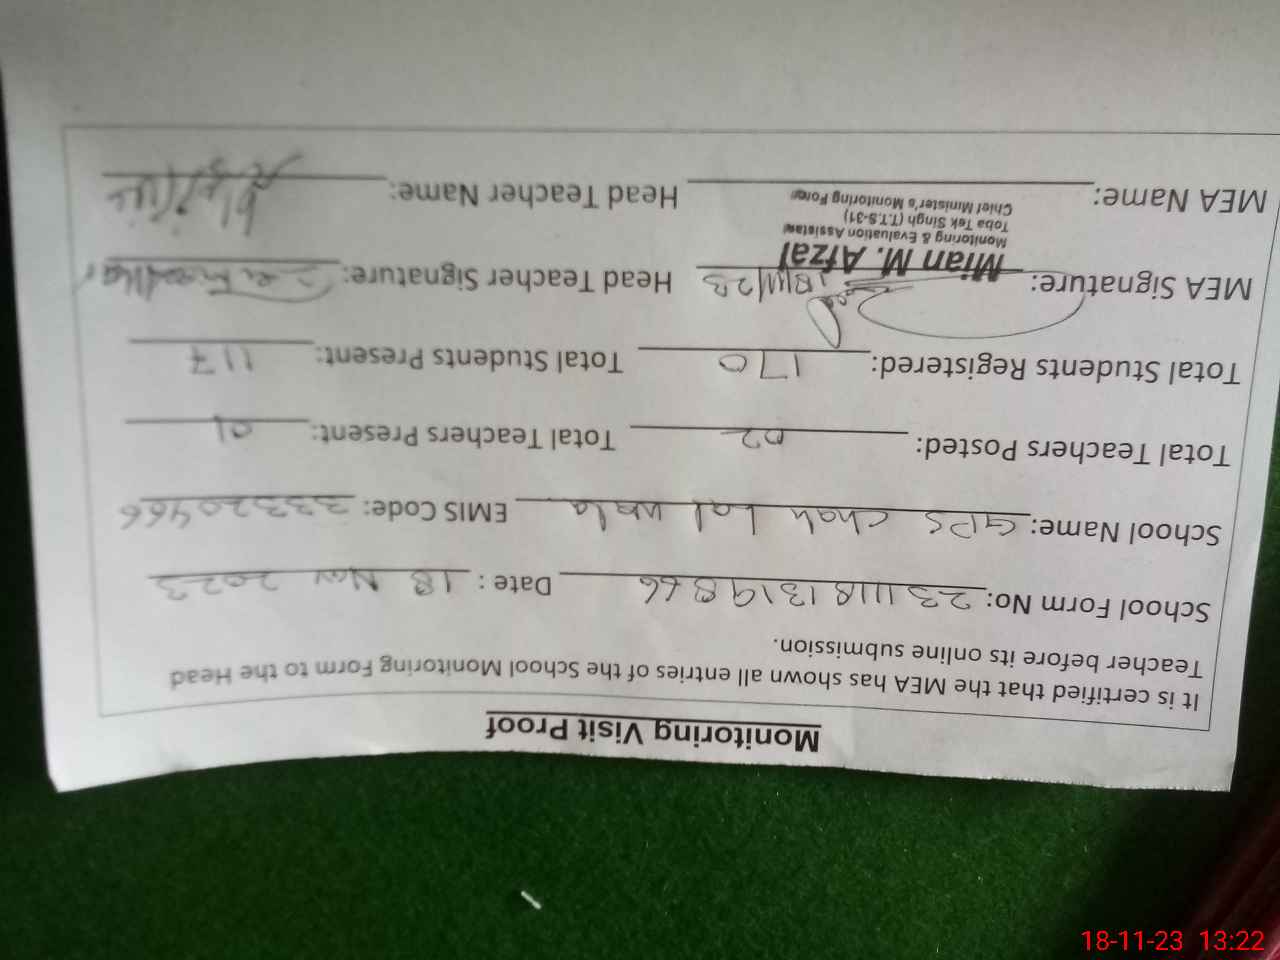 Monitoring Visit Proof
It is certified that the MEA has shown all entries of the School Monitoring Form to the Head
Teacher before its online submission.
School Form No: 2311181319866 Date : 18 Nov 2023
School Name: GPS Chah Lal Wala EMIS Code: 33320466
Total Teachers Posted: 02 Total Teachers Present: 01
Total Students Registered: 170 Total Students Present: 117
MEA Signature: 18/11/23 Head Teacher Signature:
Mian M. Afzal
Monitoring & Evaluation Assistant
Toba Tek Singh (T.T.S-31)
Chief Minister's Monitoring Force
MEA Name: Head Teacher Name:
18-11-23 13:22